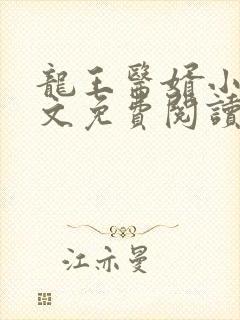 龍王醫婿小
文免費閱讀
江亦曼